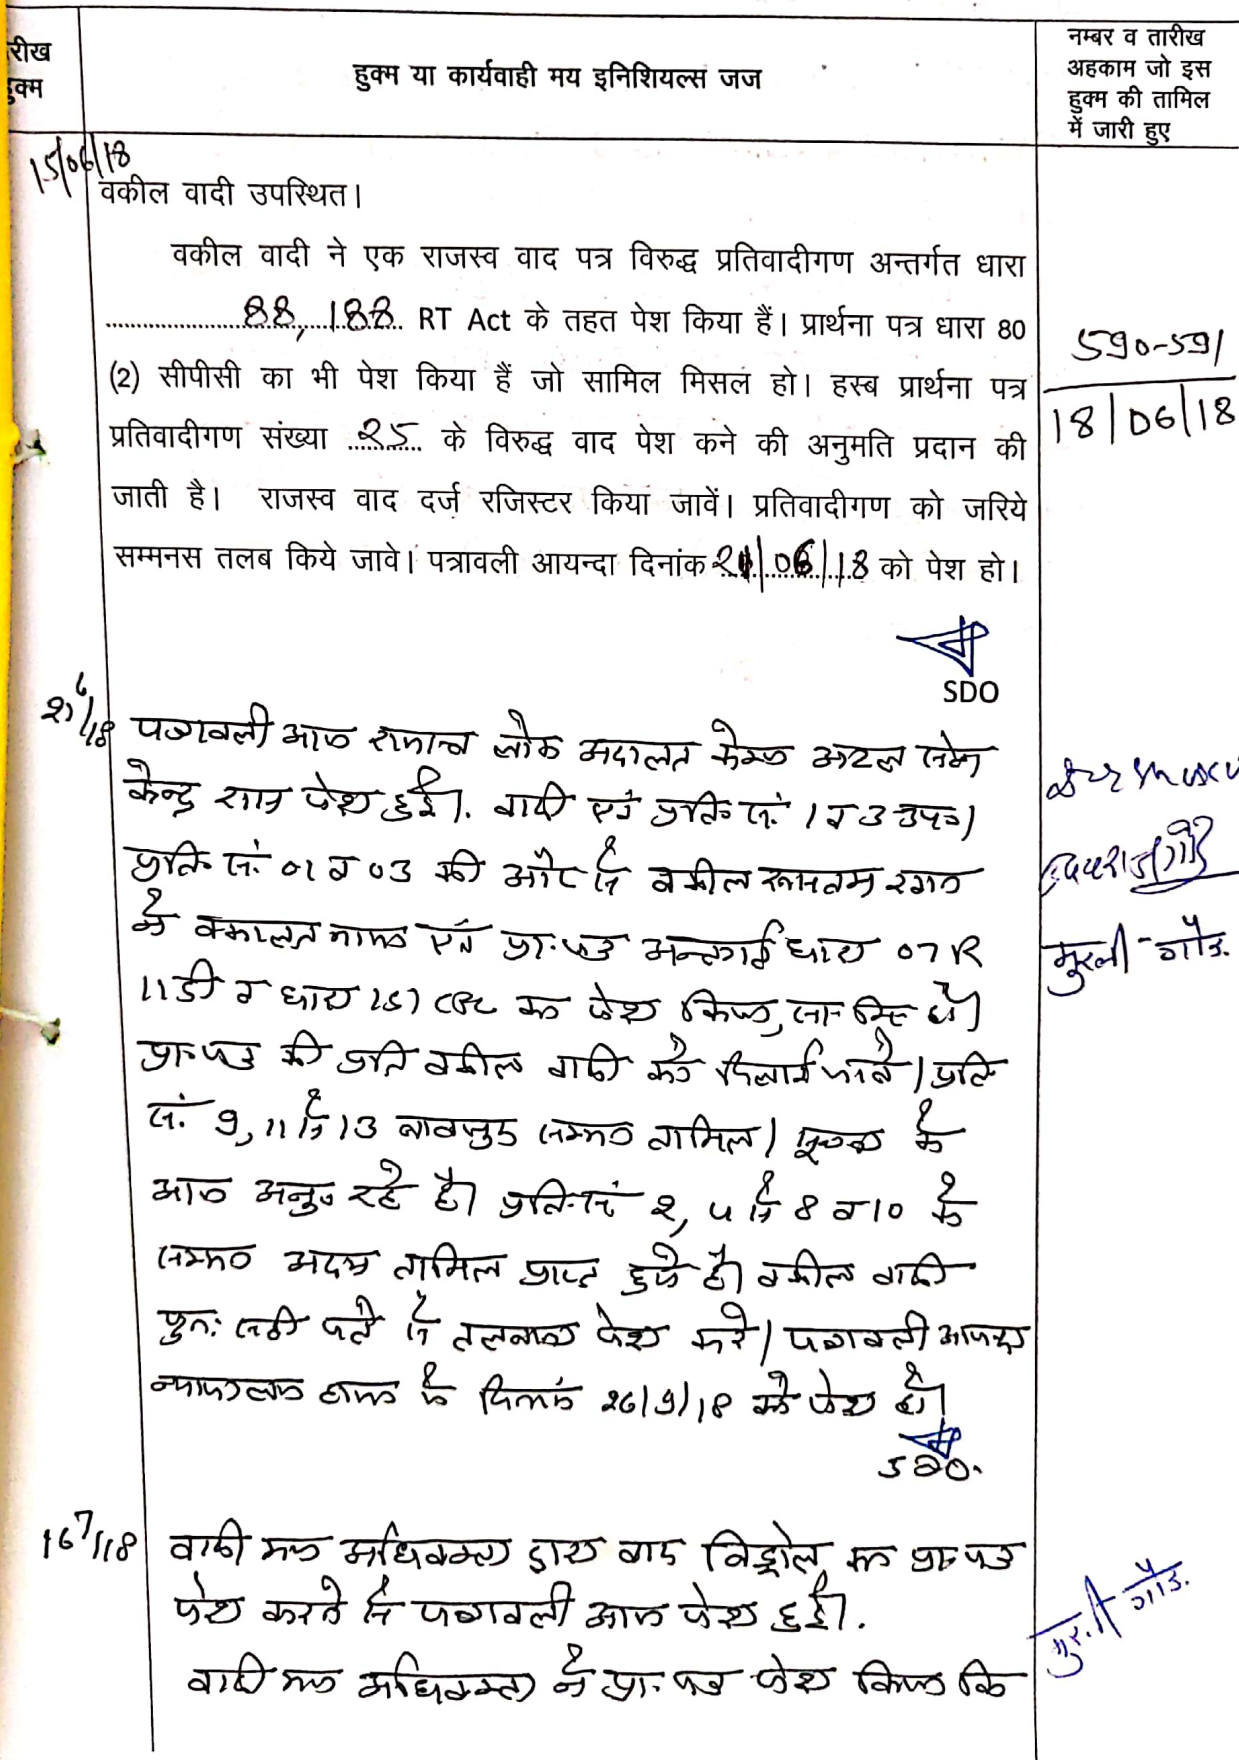 रीख
हुक्म
हुक्म या कार्यवाही मय इनिशियल्स जज
नम्बर व तारीख
अहकाम जो इस
हुक्म की तामिल
में जारी हुए
15/06/18
वकील वादी उपस्थित।
वकील वादी ने एक राजस्व वाद पत्र विरुद्ध प्रतिवादीगण अन्तर्गत धारा
88, 188 RT Act के तहत पेश किया हैं। प्रार्थना पत्र धारा 80
(2) सीपीसी का भी पेश किया हैं जो सामिल मिसल हो। हस्ब प्रार्थना पत्र
प्रतिवादीगण संख्या 25 के विरुद्ध वाद पेश कने की अनुमति प्रदान की
जाती है। राजस्व वाद दर्ज रजिस्टर किया जावें। प्रतिवादीगण को जरिये
सम्मनस तलब किये जावे। पत्रावली आयन्दा दिनांक 21/06/18 को पेश हो।
590-591
18/06/18
SDO
21/6/18
पत्रावली आज लोक अदालत केम्प अटल सेवा
केन्द्र पेश हुई। वादी एवं प्रति सं. 1 व 3 उप०।
प्रति सं. 01 व 03 की और से वकील
ने वकालत नामा एवं प्रा. पत्र अन्तर्गत धारा 07 R
11 डी व धारा 151 CPC का पेश किया, सा. मि. हो।
प्रा. पत्र की प्रति वकील वादी को दिलाई जावे। प्रति
सं. 9, 11 से 13 बावजुद सम्मन तामिल के
आज अनु० रहे है। प्रति सं 2, 4 से 8 व 10 के
सम्मन अदम तामिल प्राप्त हुये है। वकील वादी
पुन: सही पते से तलबाना पेश करे। पत्रावली आयन्दा
न्यायालय हाजा में दिनांक 26/9/18 को पेश हो।
मुरली गौड.
SDO.
16/7/18
वादी मय अधिवक्ता द्वारा वाद विड्रोल का प्रा. पत्र
पेश करने से पत्रावली आज पेश हुई।
वादी मय अधिवक्ता ने प्रा. पत्र पेश किया कि
गौड.